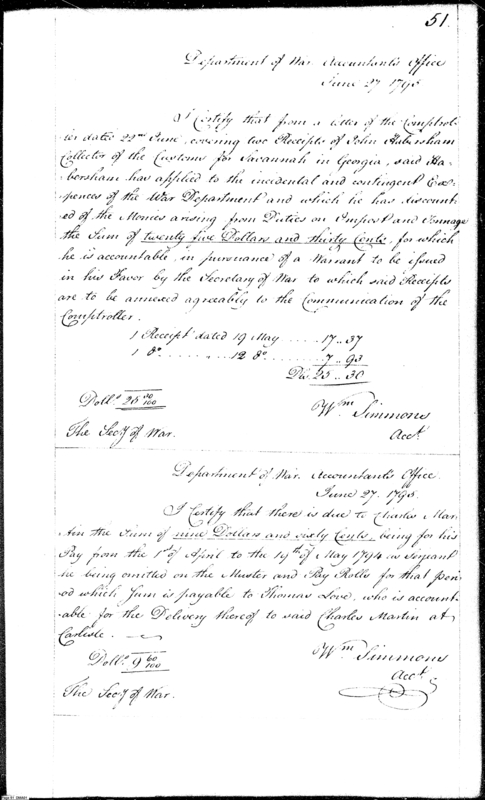 51.
Department of War. Accountants Office
June 27. 1795
I Certify that from a letter of the Comptrol-
ler dated 22nd June, covering two Receipts of John Habersham
Collector of the Customs for Savannah in Georgia, said Ha-
bersham has applied to the incidental and contingent Ex-
pences of the War Department and which he has discount-
ed of the Monies arising from Duties on Impost and Tonnage
the Sum of twenty five Dollars and thirty Cents, for which
he is accountable, in pursuance of a Warrant to be issued
in his Favor by the Secretary of War to which said Receipts
are to be annexed agreeably to the Communication of the
Comptroller.
1 Receipt dated 19 May ..... 17..37
1 Do ......... 12 Do ....... 7..93
Ds. 25..30
Dolls. 25 30/100
Wm Simmons
Acct.
The Secy of War.
Department of War. Accountants Office.
June 27. 1795.
I Certify that there is due to Charles Mar-
tin the Sum of nine Dollars and sixty Cents, being for his
Pay from the 1st of April to the 19th of May 1794 as Sergeant
he being omitted on the Muster and Pay Rolls for that peri-
od which Sum is payable to Thomas Love, who is account-
able for the Delivery thereof to said Charles Martin at
Carlisle.
Dolls. 9 60/100
Wm Simmons
Acct.
The Secy of War.